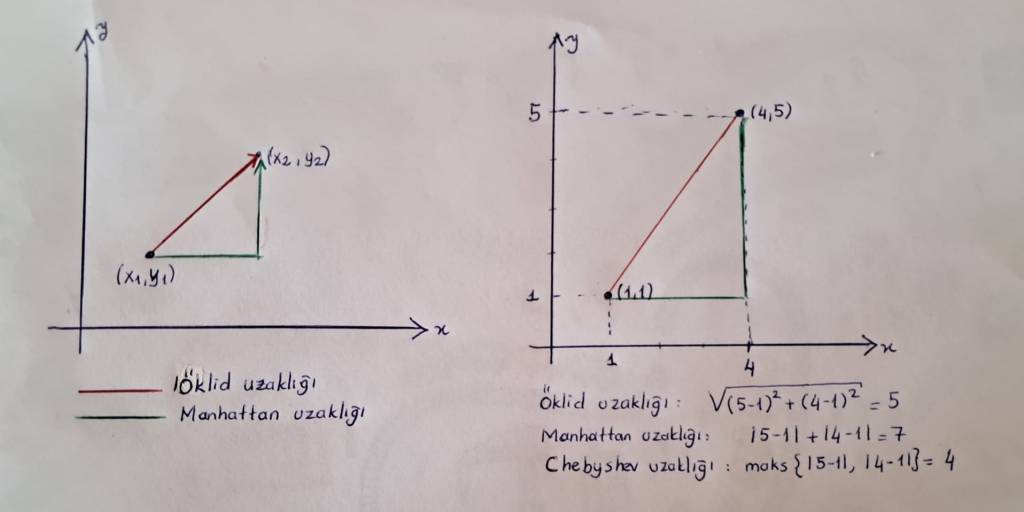 y
(x2, y2)
(x1, y1)
x
Öklid uzaklığı
Manhattan uzaklığı
y
5
(4,5)
1
(1,1)
1
4
x
Öklid uzaklığı: √(5-1)² + (4-1)² = 5
Manhattan uzaklığı: |5-1| + |4-1| = 7
Chebyshev uzaklığı: maks {|5-1|, |4-1|} = 4